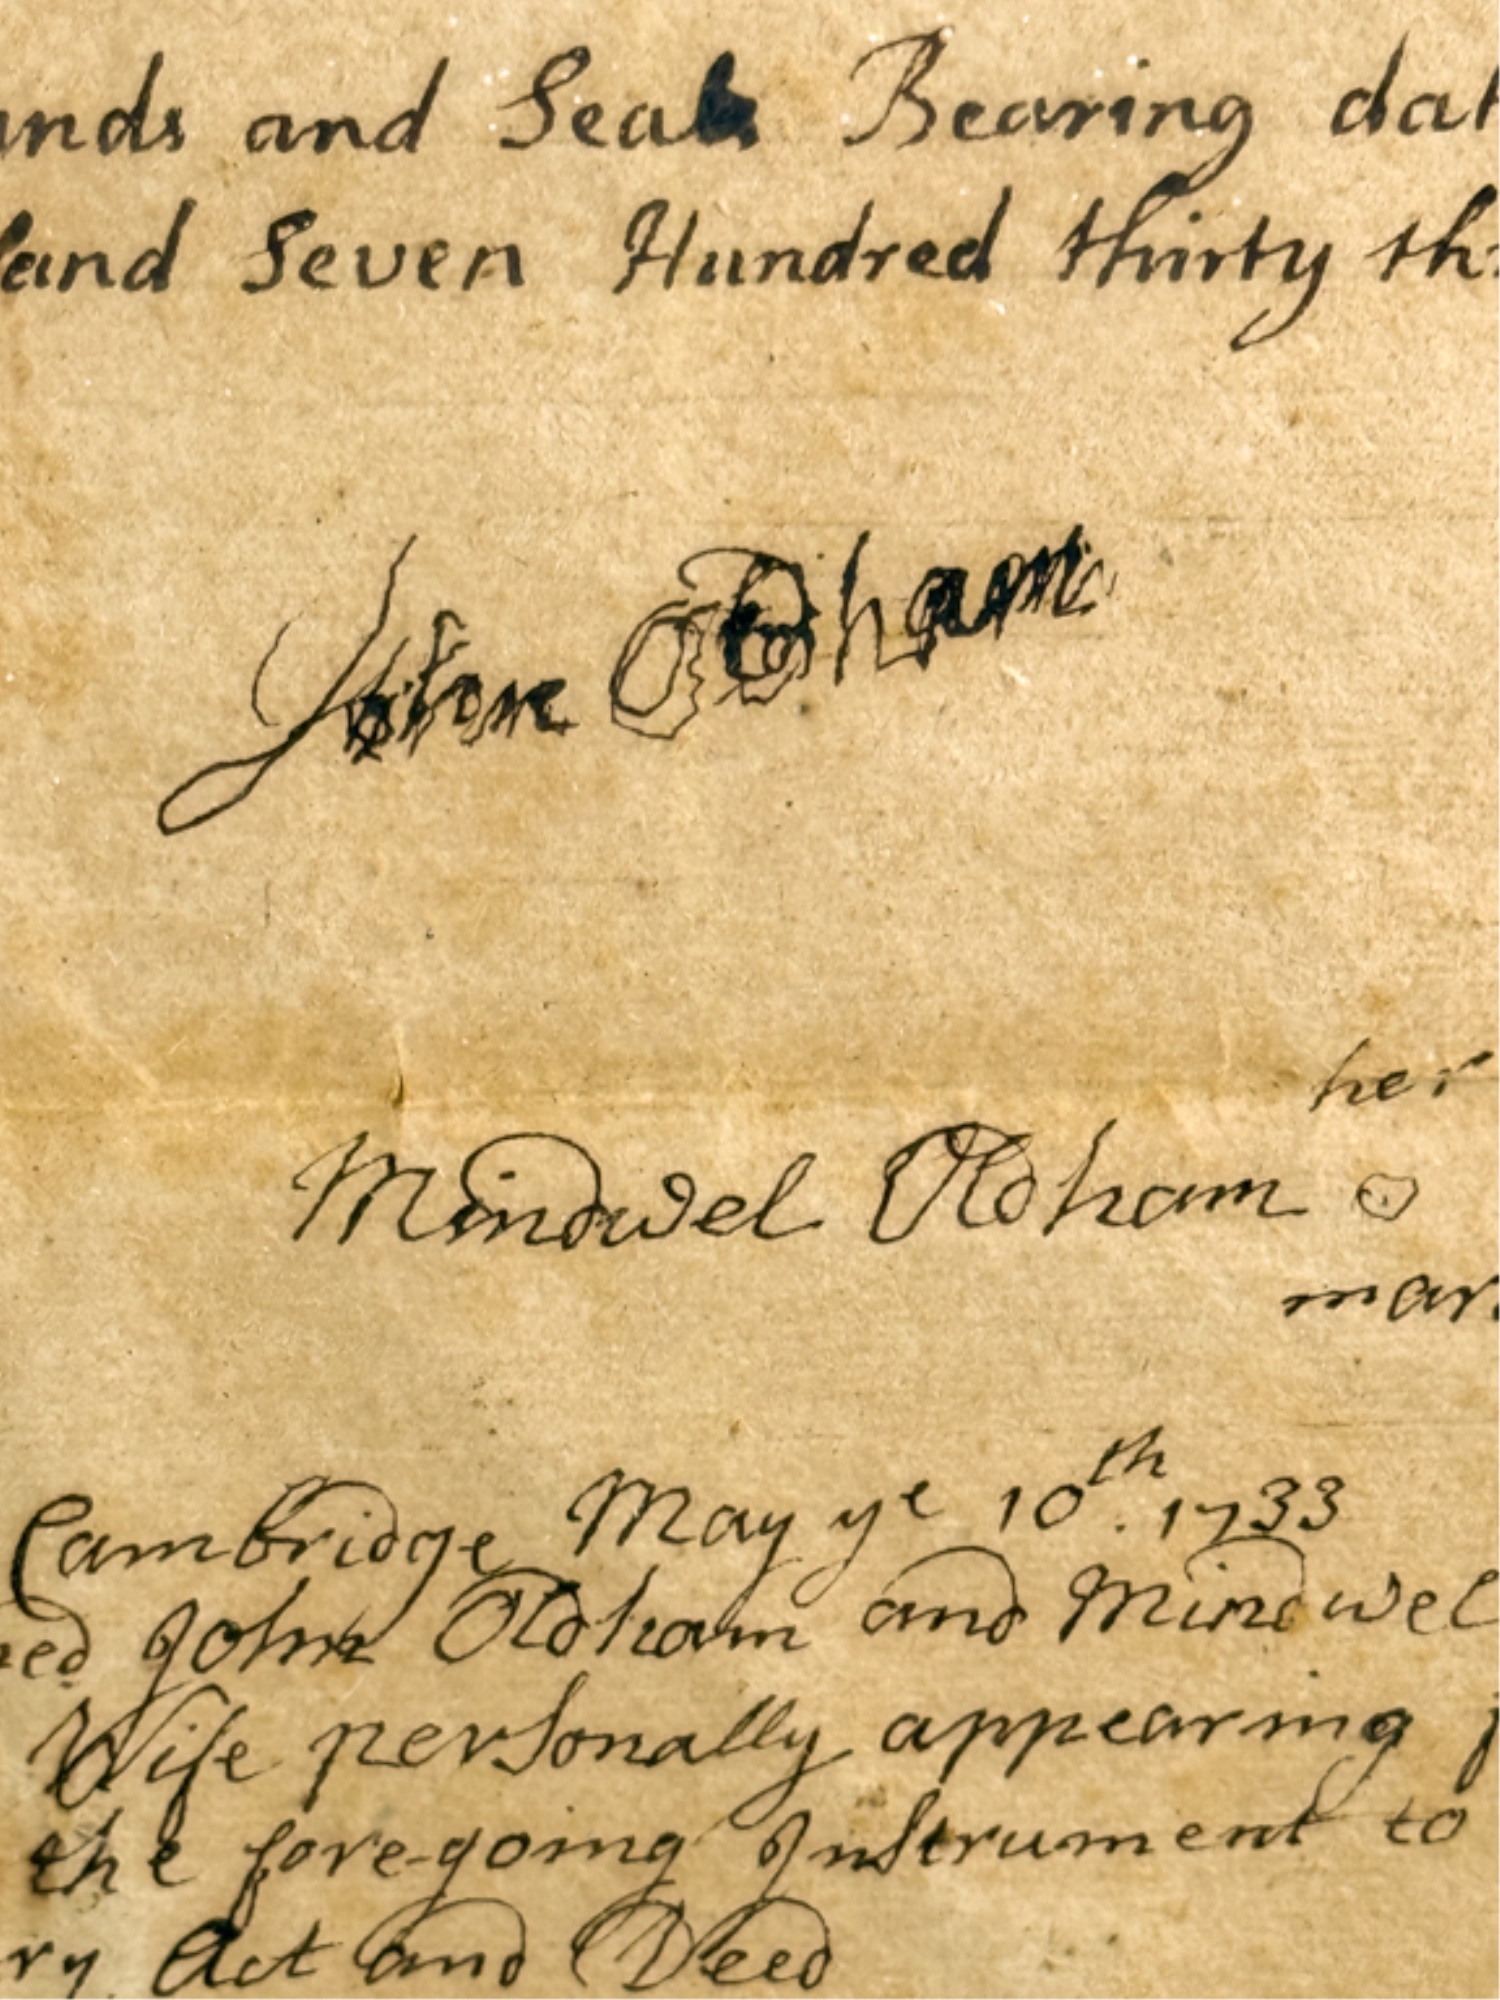 ands and Seals Bearing dat
sand Seven Hundred thirty th
John Oldham
her
Mindwel Oldham
mar
Cambridge May ye 10th. 1733
ned John Oldham and Mindwel
Wife personally appearing
the fore-going Instrument to
ry Act and Deed